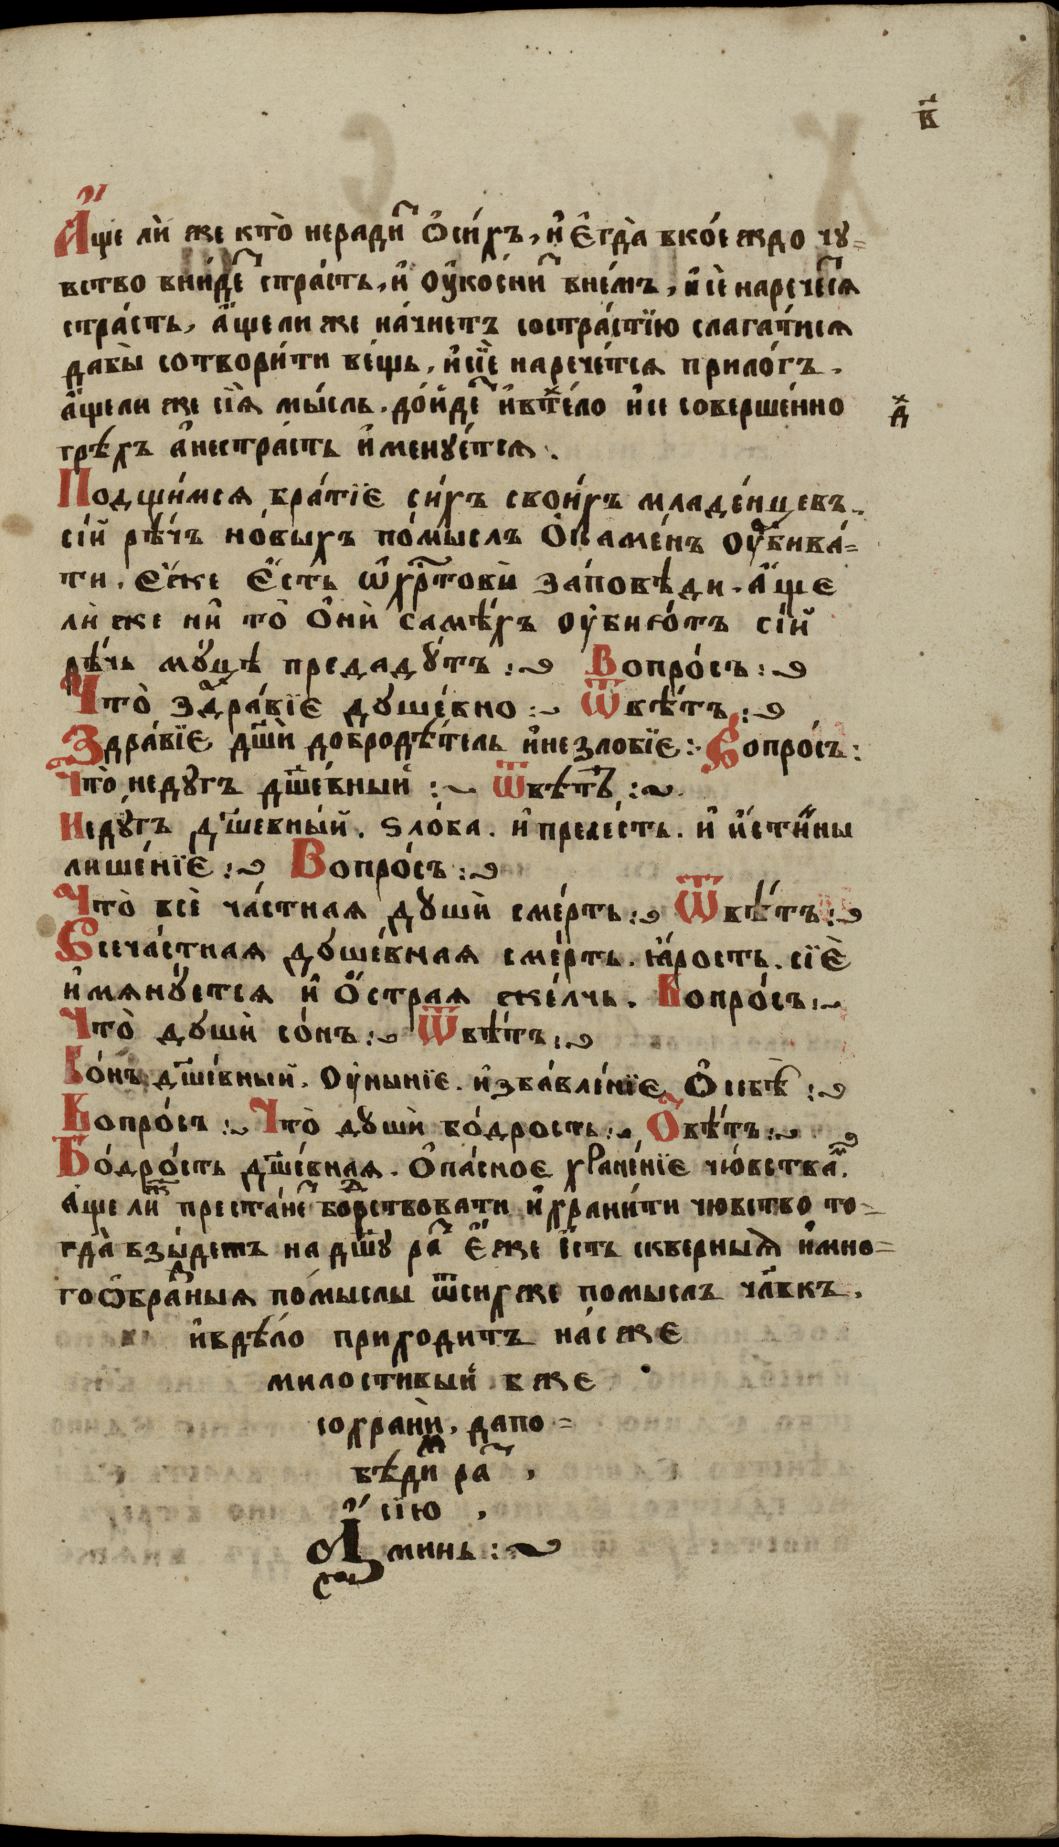 в҃
А҆́ще ли̇̀ же кто̀ неради̇ⷮ ѻ҆си́хъ, и҆ є҆гда̀ вко́е ждо чꙋ=
вство вни́деⷮ стра́сть, и҆ ѹ҆косни́ⷮ вне́мъ, и҆сѐ нарече́ⷮсѧ
стра́сть, а҆́щели же на́чнетъ состра́стїю слага́тисѧ
дабы̀ сотвори́ти ве́щь, и҆сїѐ нарече́тсѧ прило́гъ.
а҆́щели же сїѧ̀ мы́сль. до́йдеⷮ и҆втѣ́ло и҆се соверше́нно
д҃
грѣ́хъ а҆нестра́сть и҆менꙋе́тсѧ.
Подщи́мсѧ бра́тїє си́хъ свои́хъ младе́нцевъ.
сі́й рѣ́чъ но́выхъ по́мыслъ ѻ҆ка́менъ ѹ҆бива́=
ти. є҆́же є҆́сть ѿхрⷭ҇товы̀ за́повѣди. а҆́ще
ли́ же ни̑ то̀ ѻ҆нѝ самѣ́хъ ѹ҆бию́тъ сі́й
рѣ́чь мꙋ́цѣ предадꙋ́тъ: Вопро́съ:
Что̀ здра́вїє дꙋше́вно: Ѿвѣ́тъ:
Здра́вїє дш҃ѝ добродѣ́тель и҆незло́бїє: Вопро́съ:
Что̀ недꙋгъ дш҃е́вный: Ѿвѣ́тъ:
Недꙋ́гъ дш҃евны́й. ѕло́ба. и҆ пре́лесть. и҆ и҆́стинны
лише́нїє: Вопро́съ:
Что̀ всѐ ча́стнаѧ дꙋшѝ сме́рть: Ѿвѣ́тъ:
Всеча́стнаѧ дꙋше́внаѧ сме́рть. ꙗ҆́рость. сїѐ
и҆мѧнꙋ́етсѧ и҆ ѻ҆́страѧ же́лчь. Вопро́съ:
Что̀ дꙋшѝ со́нъ: Ѿвѣ́тъ:
Со́нъ дш҃е́вный. ѹ҆ны́нїє. и҆збавле́нїє ѻ҆ себѣ̀:
Вопро́съ: Что̀ дꙋшѝ бо́дрость: Ѻ҆вѣ́тъ:
Бо́дрость дш҃е́внаѧ. Ѻ҆па́сноє хране́нїє чю́вства́мⸯ.
а́ще ли преста́неⷮ боⷣрствовати и҆храни́ти чювство то=
гда̀ взы́деть на дш҃ꙋ раⷥ є҆́же є҆́сть скверныѧ̀ и҆мно=
гоѻбра́ꙁныѧ по́мыслы ѿсихже помыслъ чл҃вкъ.
и҆вдѣ́ло приходитъ на́сже
милостивый бже
сохранѝ. дапо=
вѣди́м раⷥ,
сїю,
Аминь: